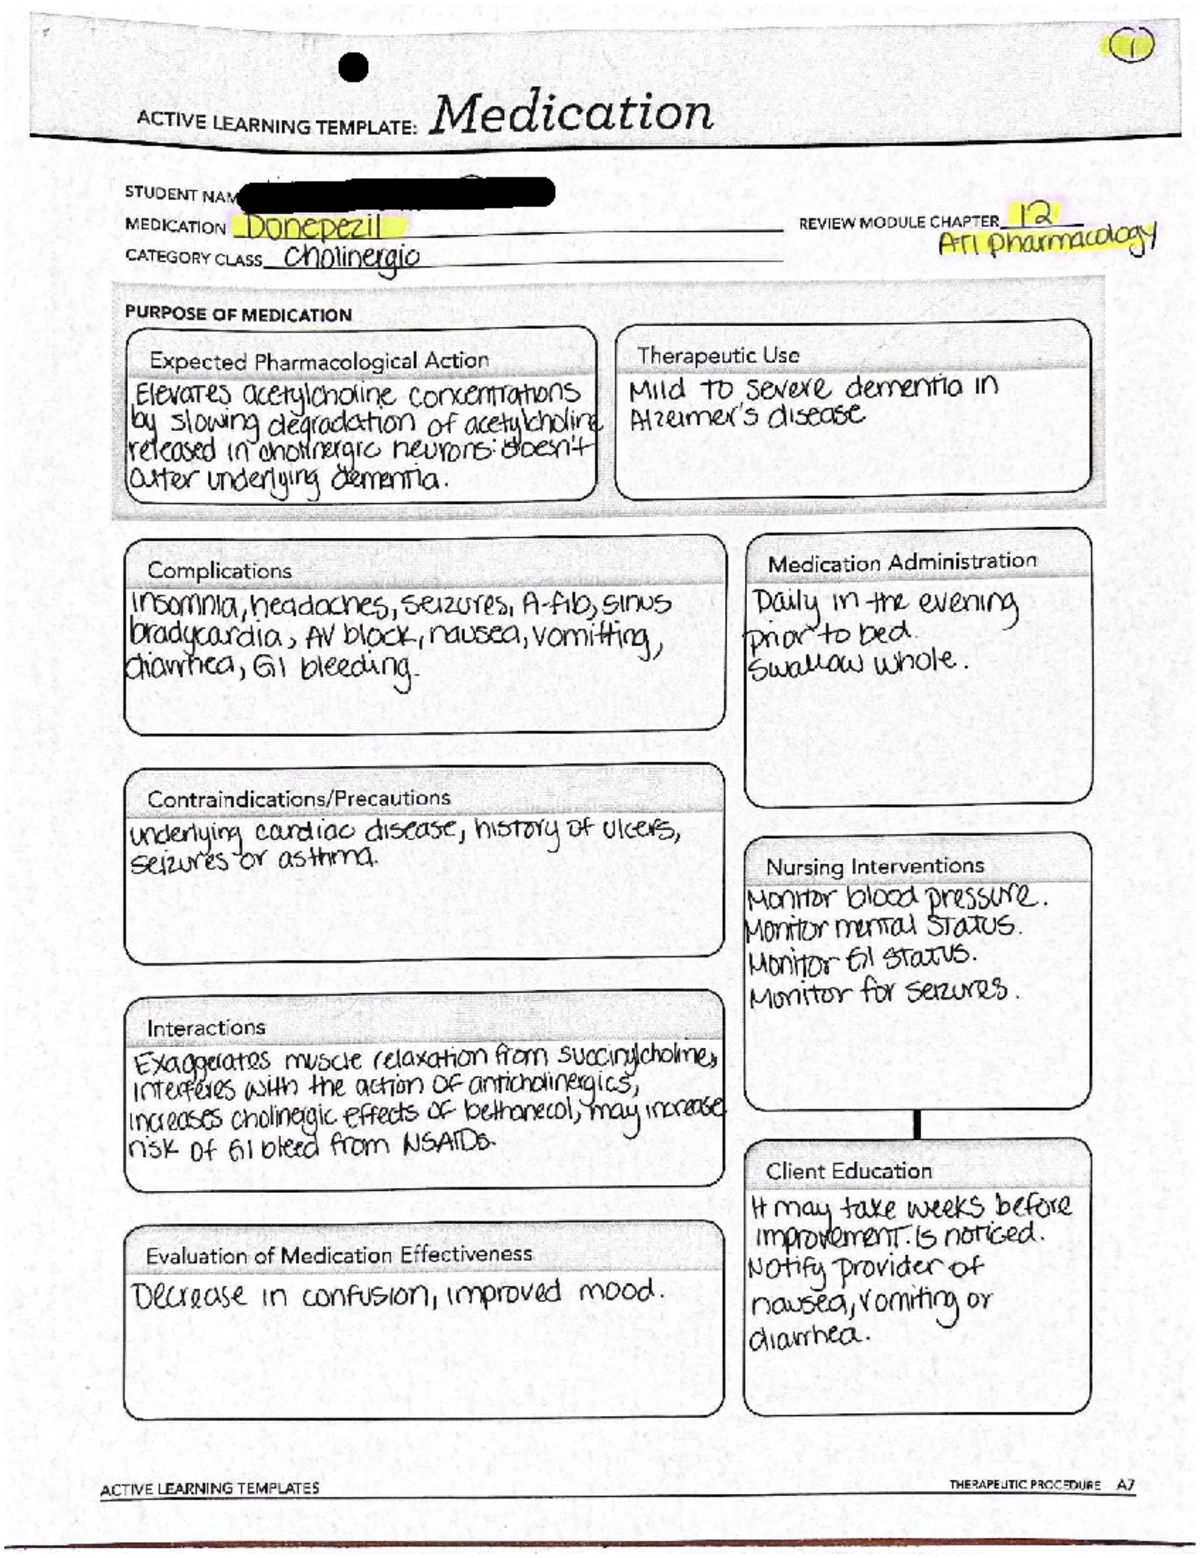 1
ACTIVE LEARNING TEMPLATE: Medication
STUDENT NAM
MEDICATION Donepezil
REVIEW MODULE CHAPTER 12
ATI pharmacology
CATEGORY CLASS Cholinergic
PURPOSE OF MEDICATION
Expected Pharmacological Action
Elevates acetylcholine concentrations
by slowing degradation of acetylcholine
released in cholinergic neurons: doesn't
alter underlying dementia.
Therapeutic Use
Mild to severe dementia in
Alzeimer's disease
Complications
Insomnia, headaches, seizures, A-fib, sinus
bradycardia, AV block, nausea, vomitting,
diarrhea, GI bleeding.
Medication Administration
Daily in the evening
prior to bed.
Swallow whole.
Contraindications/Precautions
underlying cardiac disease, history of ulcers,
seizures or asthma.
Nursing Interventions
Monitor blood pressure.
Monitor mental status.
Monitor GI status.
Monitor for seizures.
Interactions
Exaggerates muscle relaxation from succinylcholine,
interferes with the action of anticholinergics,
increases cholinergic effects of bethanecol, may increase
risk of GI bleed from NSAIDs.
Client Education
It may take weeks before
improvement is noticed.
Notify provider of
nausea, vomiting or
diarrhea.
Evaluation of Medication Effectiveness
Decrease in confusion, improved mood.
ACTIVE LEARNING TEMPLATES
THERAPEUTIC PROCEDURE A7